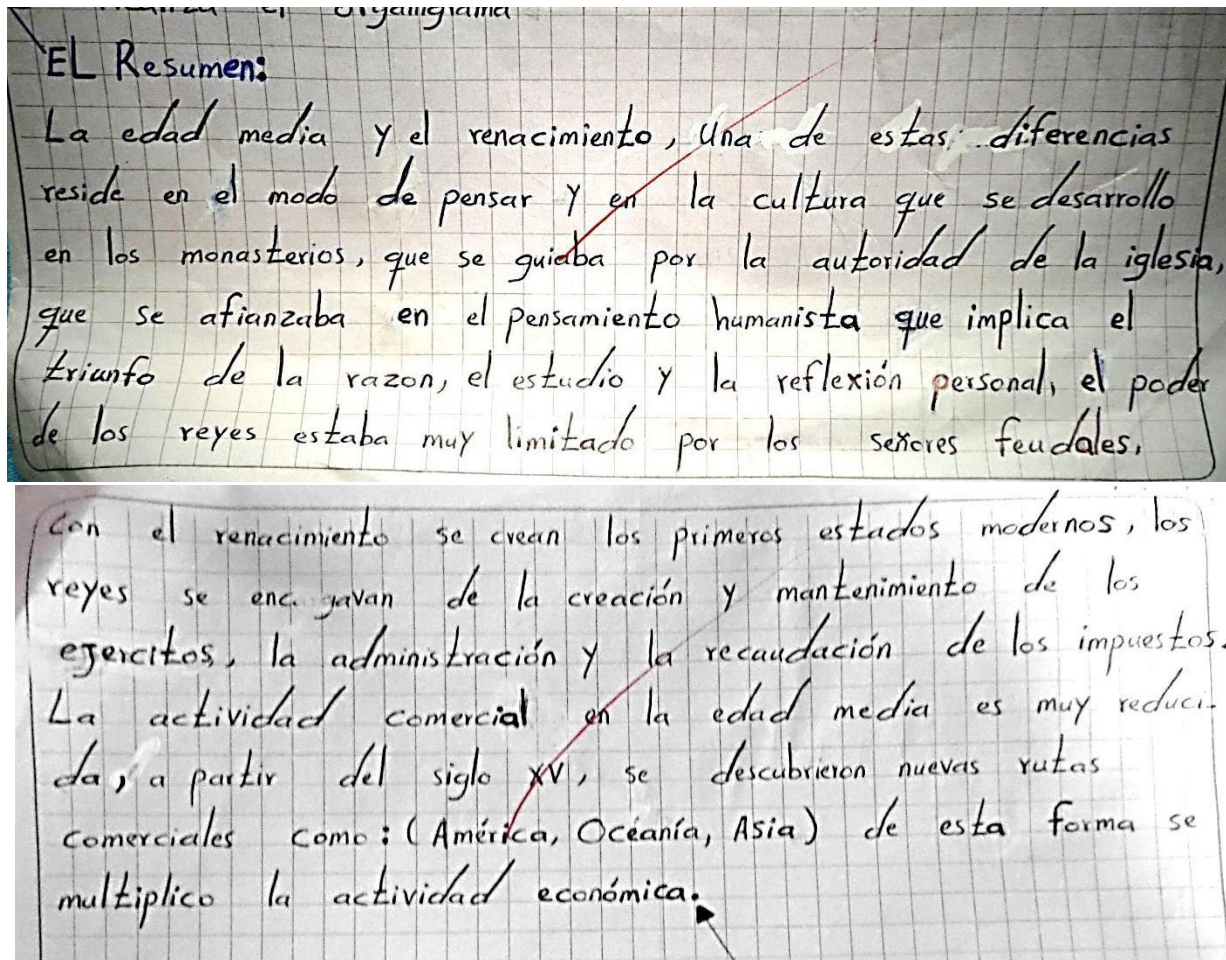 organigrama
EL Resumen:
La edad media y el renacimiento, una de estas diferencias
reside en el modo de pensar y en la cultura que se desarrollo
en los monasterios, que se guiaba por la autoridad de la iglesia,
que se afianzaba en el pensamiento humanista que implica el
triunfo de la razon, el estudio y la reflexión personal, el poder
de los reyes estaba muy limitado por los señores feudales,
con el renacimiento se crean los primeros estados modernos, los
reyes se de la creación y mantenimiento de los
ejercitos, la administración y la recaudación de los impuestos.
La actividad comercial en la edad media es muy reduci-
da, a partir del siglo XV, se descubrieron nuevas rutas
comerciales como: (América, Océanía, Asia) de esta forma se
multiplico la actividad económica.